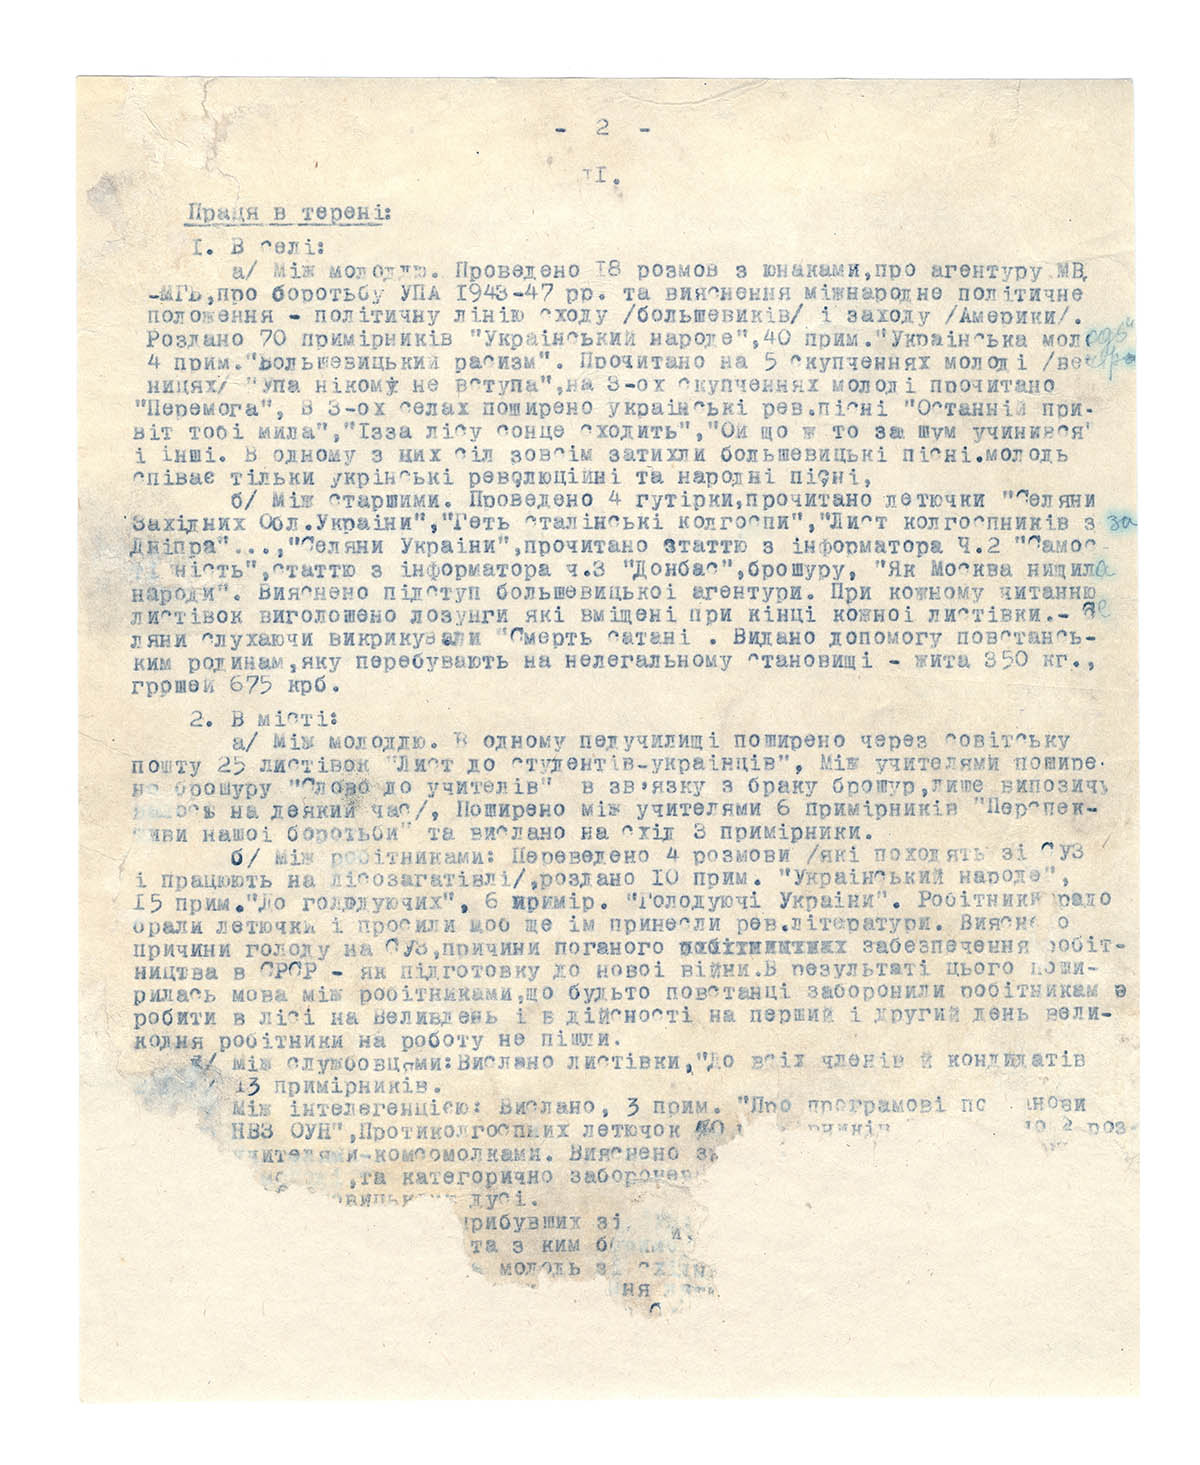 - 2 -
II.
Праця в терені:
I. В селі:
а/ Між молоддю. Проведено I8 розмов з юнаками,про агентуру МВД
-МГБ,про боротьбу УПА I943-47 рр. та вияснення міжнародне політичне
положення - політичну лінію сходу /большевиків/ і заходу /Америки/.
Роздано 70 примірників "Український народе",40 прим."Українська молодь"
4 прим."Большевицький расизм". Прочитано на 5 скупченнях молоді /вечер
ницях/ "Упа нікому не вступа",на 3-ох скупченнях молоді прочитано
"Перемога", В 3-ох селах поширено українські рев.пісні "Останній при-
віт тобі мила","Ізза лісу сонце сходить","Ой що ж то за шум учинився"
і інші. В одному з них сіл зовсім затихли большевицькі пісні.молодь
співає тільки укрінські революційні та народні пісні,
б/ Між старшими. Проведено 4 гутірки,прочитано летючки "Селяни
Західних Обл.України","Геть сталінські колгоспи","Лист колгоспників з за
Дніпра"...,"Селяни України",прочитано статтю з інформатора Ч.2 "Самос-
ність",статтю з інформатора ч.3 "Донбас",брошуру, "Як Москва нищила
народи". Вияснено підступ большевицької агентури. При кожному читанню
листівок виголошено лозунги які вміщені при кінці кожної листівки.- Се
ляни слухаючи викрикували "Смерть сатані . Видано допомогу повстансь-
ким родинам,яку перебувають на нелегальному становищі - жита 350 кг.,
грошей 675 крб.
2. В місті:
а/ Між молоддю. В одному педучилищі поширено через совітську
пошту 25 листівок "Лист до студентів-українців", Між учителями пошире-
но брошуру "Слово до учителів" в зв'язку з браку брошур,лише випозичу
валось на деякий час/, Поширено між учителями 6 примірників "Перспек-
тиви нашої боротьби" та вислано на схід 3 примірники.
б/ Між робітниками: Переведено 4 розмови /які походять зі СУЗ
і працюють на лісозагатівлі/,роздано I0 прим. "Український народе",
I5 прим."До голодуючих", 6 примір. "Голодуючі України". Робітники радо
брали летючки і просили щоб ще їм принесли рев.літератури. Вияснено
причини голоду на СУЗ,причини поганого забезпечення робіт-
ництва в СРСР - як підготовку до нової війни.В результаті цього поши-
рилась мова між робітниками,що будьто повстанці заборонили робітникам
робити в лісі на Великдень і в дійсності на перший і другий день вели-
кодня робітники на роботу не пішли.
/ Між службовцями:Вислано листівки,"До всіх членів й кондидатів
I3 примірників.
Між інтелегенцією: Вислано, 3 прим. "Про програмові пос анови
НВЗ ОУН",Протиколгоспних летючок 40 2 роз-
учителями-комсомолками. Вияснено
,та категорично заборонен
дусі.
прибувших зі
та з ким
молодь зі східн
ня